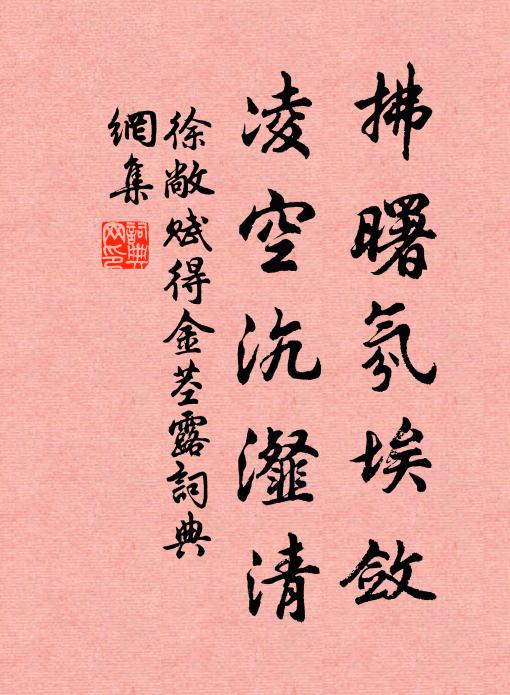 拂曙氛埃斂
凌空沆瀣清
徐敞賦得金莖露詞典
網集
詞典
网印